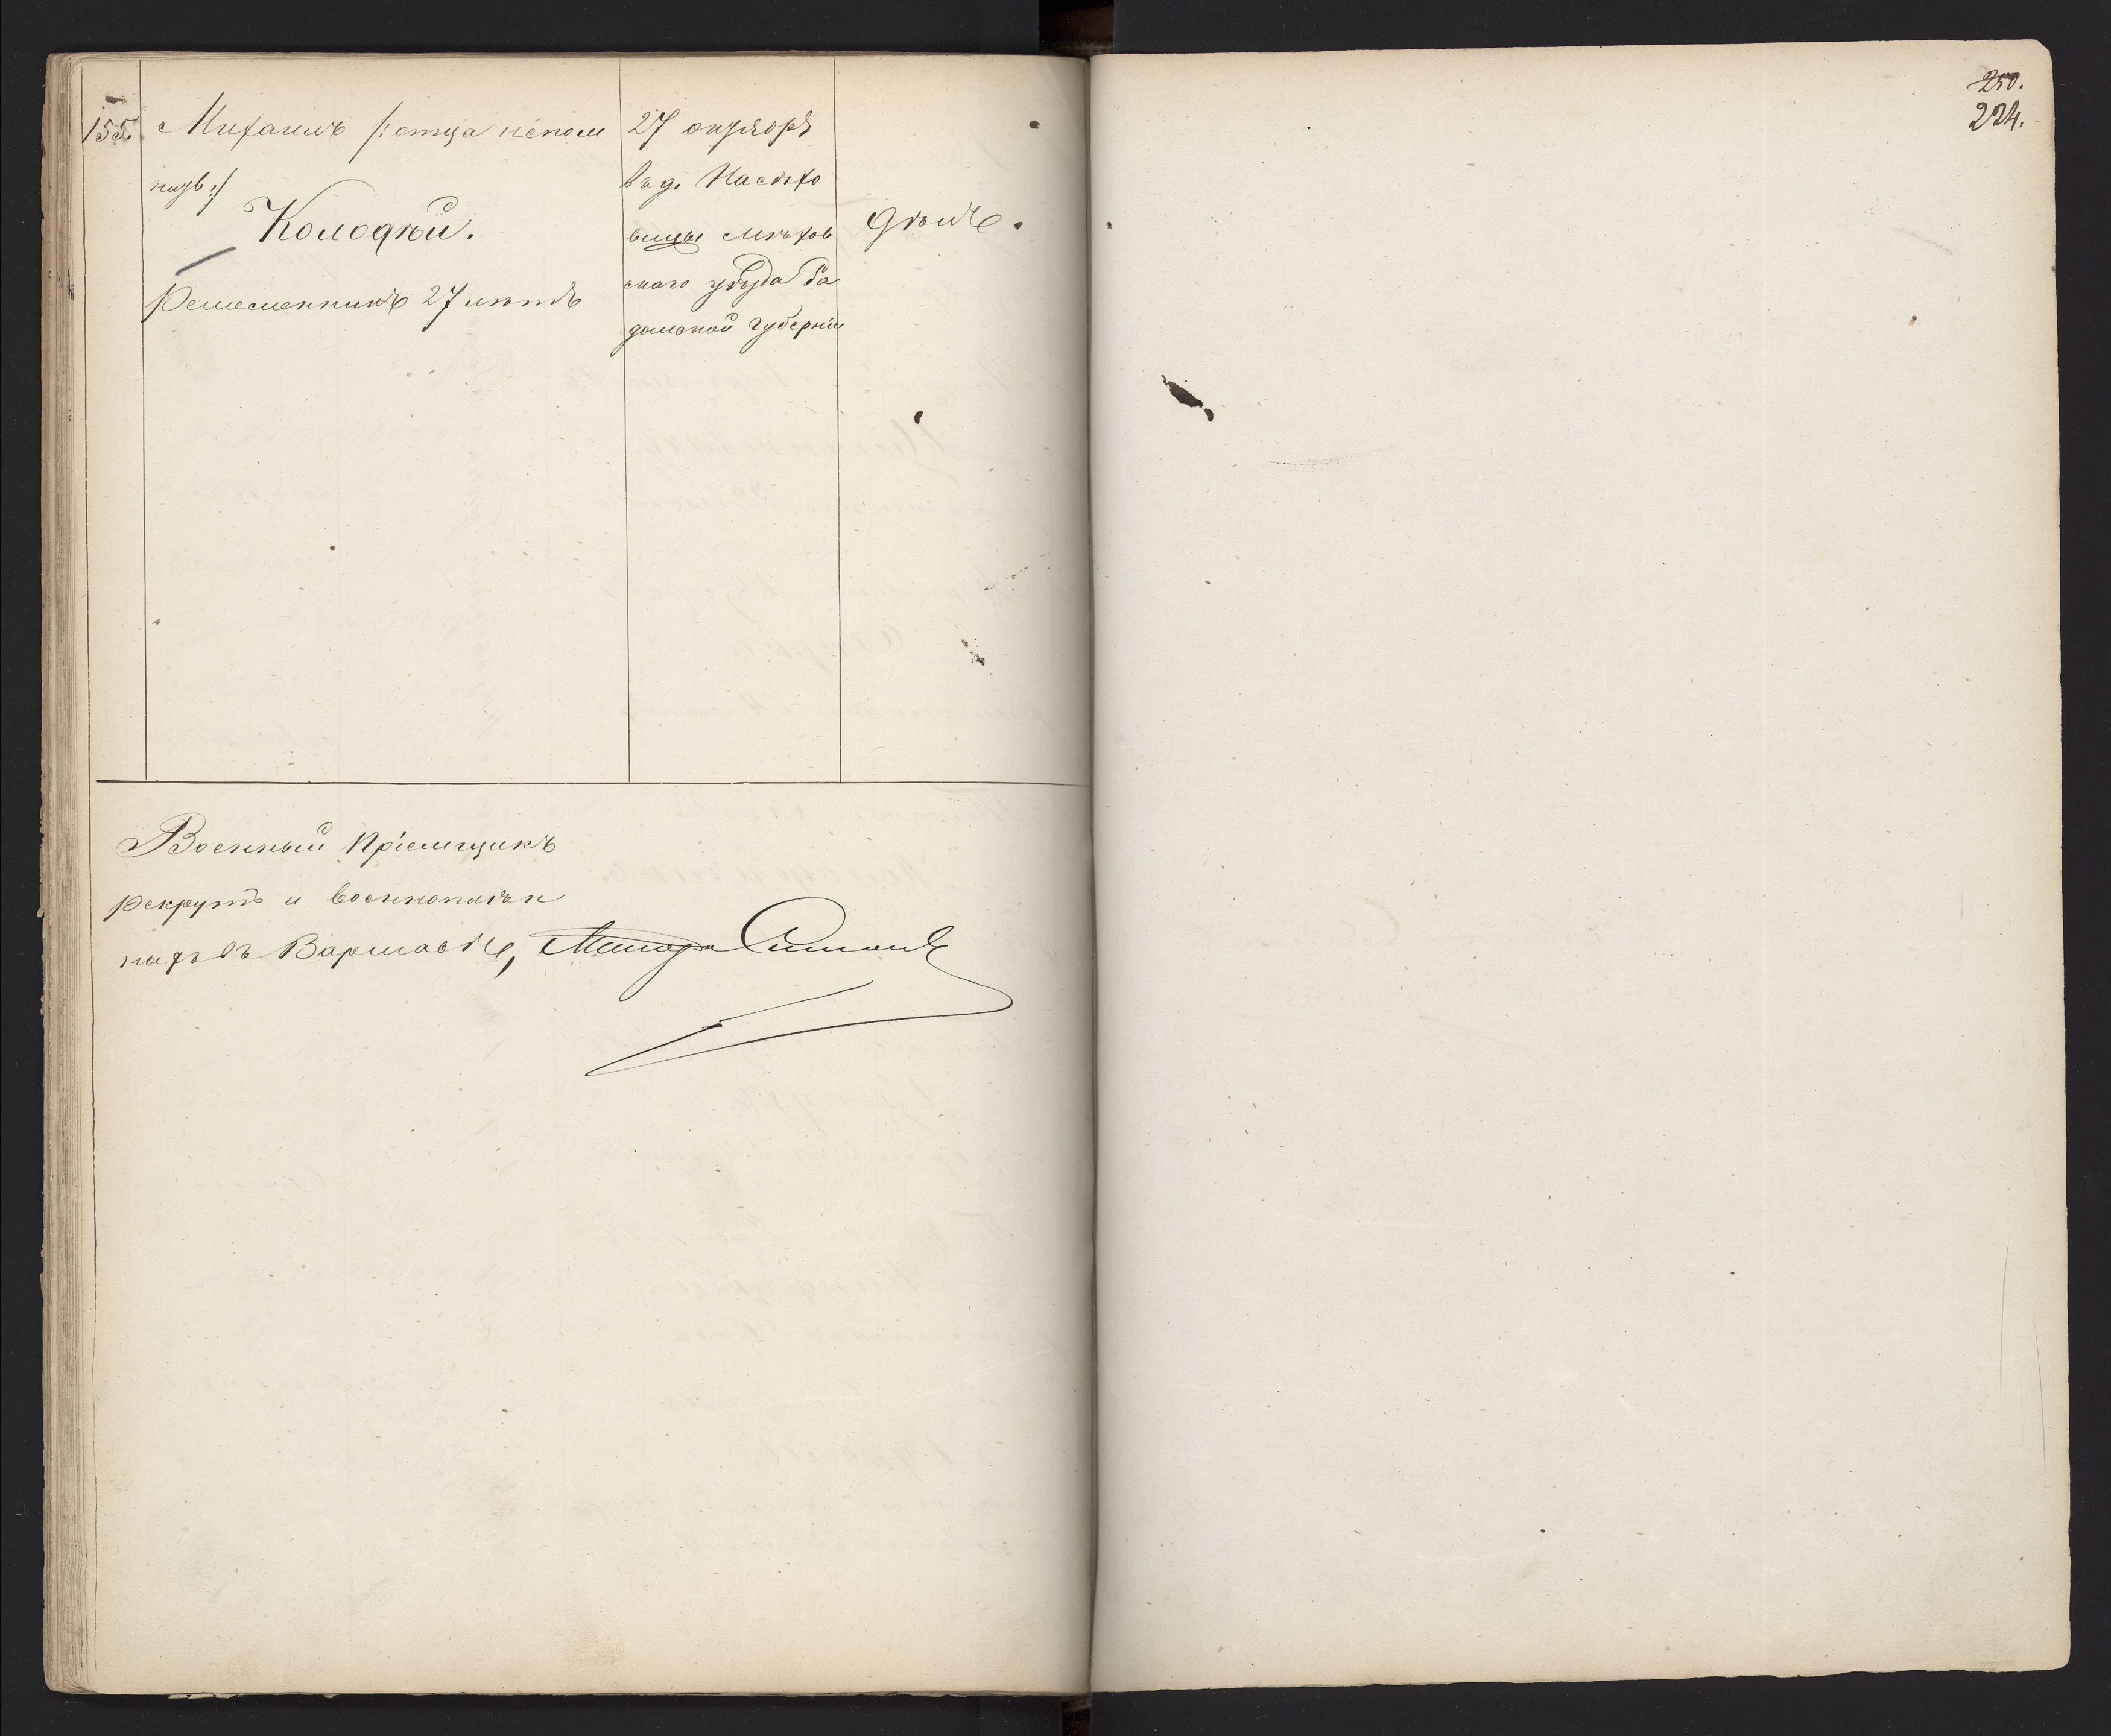 250.
224.
155.
Михаилъ /: отца непом
нитъ :/
Колодѣй.
Ремесленникъ 27 лѣтъ
27 октября
въ д. Насѣхо
вицы Мѣхов
скаго уѣзда Ра
домской губерніи
Военный Пріемщикъ
рекрутъ и военноплѣн
ныхъ въ Варшавѣ, Маіоръ